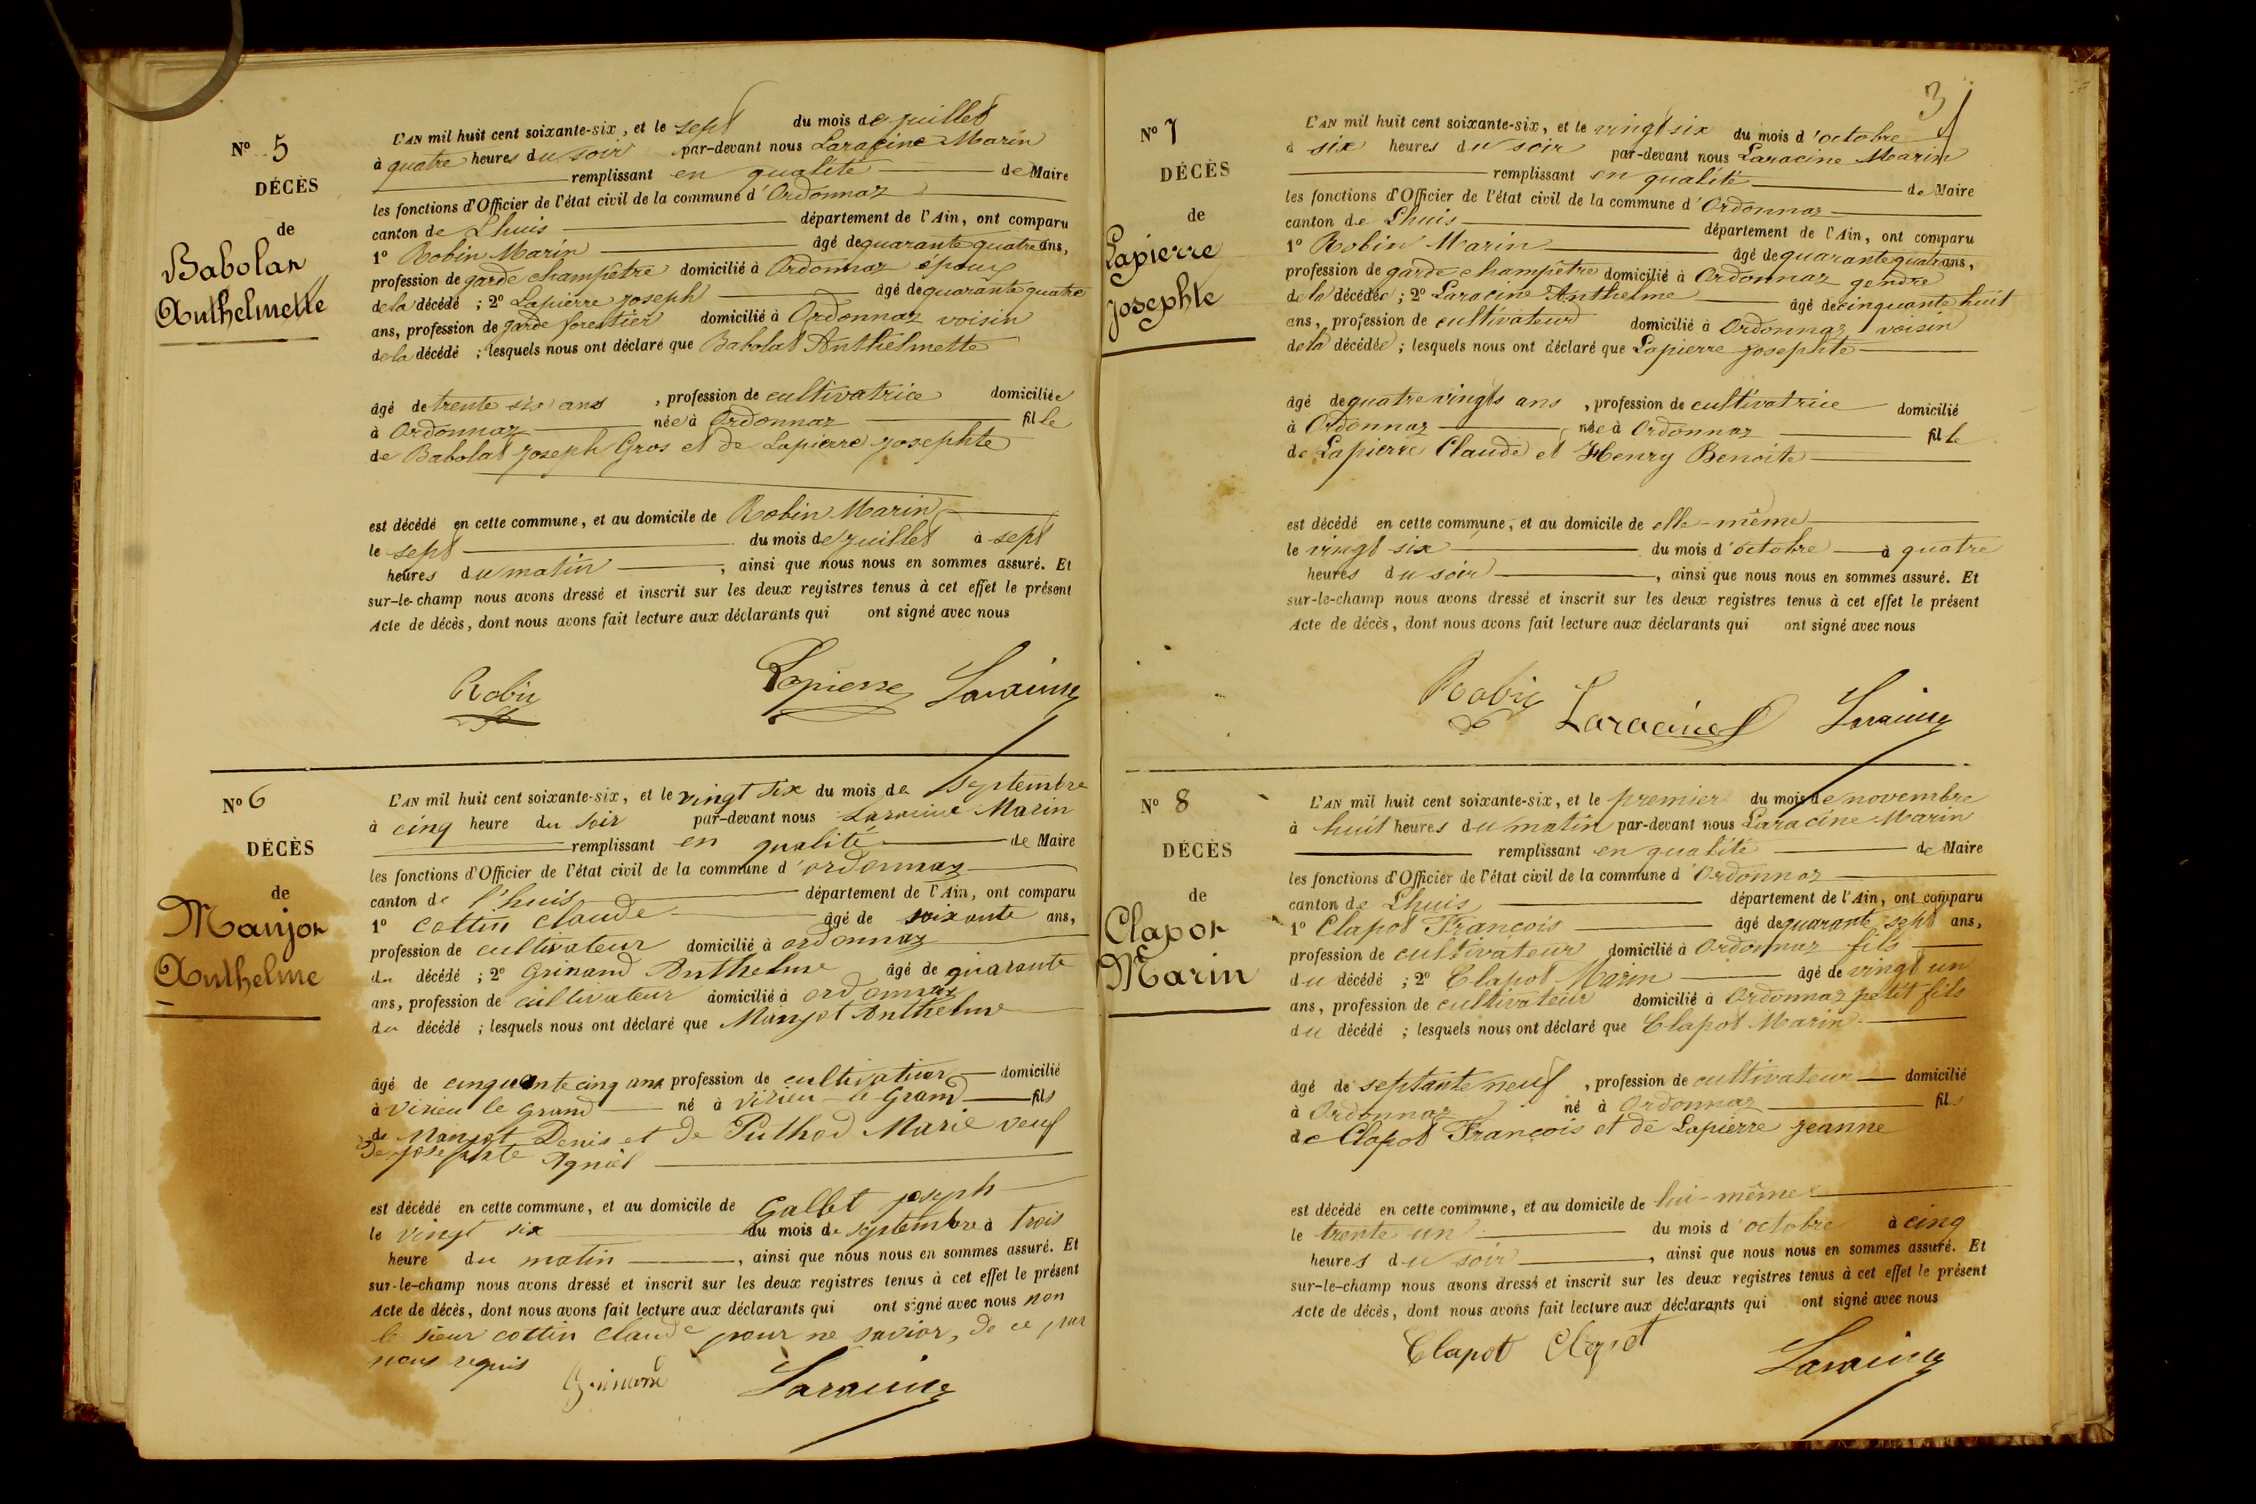 N° 5
DÉCÈS
de
Babolat
Anthelmette
L'AN mil huit cent soixante-six, et le sept du mois de juillet
à quatre heures du soir par-devant nous Laracine Marin
remplissant en qualité de Maire
les fonctions d'Officier de l'état civil de la commune d'Ordonnaz
canton de Lhuis département de l'Ain, ont comparu
1° Robin Marin âgé de quarante quatre ans,
profession de garde champêtre domicilié à Ordonnaz époux
de la décédé ; 2° Lapierre Joseph âgé de quarante quatre
ans, profession de garde forestier domicilié à Ordonnaz voisin
de la décédé ; lesquels nous ont déclaré que Babolat Anthelmette
âgé de trente six ans, profession de cultivatrice domiciliée
à Ordonnaz née à Ordonnaz fille
de Babolat Joseph Gros et de Lapierre Josephte
est décédé en cette commune, et au domicile de Robin Marin
le sept du mois de juillet à sept
heures du matin, ainsi que nous nous en sommes assuré. Et
sur-le-champ nous avons dressé et inscrit sur les deux registres tenus à cet effet le présent
Acte de décès, dont nous avons fait lecture aux déclarants qui ont signé avec nous
Robin Lapierre Laracine
N° 6
DÉCÈS
de
Manjot
Anthelme
L'AN mil huit cent soixante-six, et le vingt six du mois de septembre
à cinq heure du soir par-devant nous Laracine Marin
remplissant en qualité de Maire
les fonctions d'Officier de l'état civil de la commune d'ordonnaz
canton de l'huis département de l'Ain, ont comparu
1° Cottin Claude âgé de soixante ans,
profession de cultivateur domicilié à ordonnaz
du décédé ; 2° Grinand Anthelme âgé de quarante
ans, profession de cultivateur domicilié à ordonnaz
du décédé ; lesquels nous ont déclaré que Manjot Anthelme
âgé de cinquante cinq ans profession de cultivateur domicilié
à Virieu le Grand né à Virieu-le-Grand fils
de Manjot Denis et de Puthod Marie veuf
de josephte Agniel
est décédé en cette commune, et au domicile de Gallet joseph
le vingt six du mois de septembre à trois
heure du matin, ainsi que nous nous en sommes assuré. Et
sur-le-champ nous avons dressé et inscrit sur les deux registres tenus à cet effet le présent
Acte de décès, dont nous avons fait lecture aux déclarants qui ont signé avec nous non
le sieur cottin Claude pour ne savior, de ce par
nous requis
Grinand Laracine
3
N° 7
DÉCÈS
de
Lapierre
Josephte
L'AN mil huit cent soixante-six, et le vingt six du mois d'octobre
à six heures du soir par-devant nous Laracine Marin
remplissant en qualité de Maire
les fonctions d'Officier de l'état civil de la commune d'Ordonnaz
canton de Lhuis département de l'Ain, ont comparu
1° Robin Marin âgé de quarante quatre ans,
profession de garde champêtre domicilié à Ordonnaz gendre
de la décédée ; 2° Laracine Anthelme âgé de cinquante huit
ans, profession de cultivateur domicilié à Ordonnaz voisin
de la décédée ; lesquels nous ont déclaré que Lapierre Josephte
âgé de quatre vingts ans, profession de cultivatrice domicilié
à Ordonnaz née à Ordonnaz fille
de Lapierre Claude et Henry Benoite
est décédé en cette commune, et au domicile de elle-même
le vingt six du mois d'octobre à quatre
heures du soir, ainsi que nous nous en sommes assuré. Et
sur-le-champ nous avons dressé et inscrit sur les deux registres tenus à cet effet le présent
Acte de décès, dont nous avons fait lecture aux déclarants qui ont signé avec nous
Robin Laracine Laracine
N° 8
DÉCÈS
de
Clapot
Marin
L'AN mil huit cent soixante-six, et le premier du mois de novembre
à huit heures du matin par-devant nous Laracine Marin
remplissant en qualité de Maire
les fonctions d'Officier de l'état civil de la commune d'Ordonnaz
canton de Lhuis département de l'Ain, ont comparu
1° Clapot François âgé de quarante sept ans,
profession de cultivateur domicilié à Ordonnaz fils
du décédé ; 2° Clapot Marin âgé de vingt un
ans, profession de cultivateur domicilié à Ordonnaz petit fils
du décédé ; lesquels nous ont déclaré que Clapot Marin
âgé de septante neuf, profession de cultivateur domicilié
à Ordonnaz né à Ordonnaz fils
de Clapot François et de Lapierre Jeanne
est décédé en cette commune, et au domicile de lui-même
le trente un du mois d'octobre à cinq
heures du soir, ainsi que nous nous en sommes assuré. Et
sur-le-champ nous avons dressé et inscrit sur les deux registres tenus à cet effet le présent
Acte de décès, dont nous avons fait lecture aux déclarants qui ont signé avec nous
Clapot Clapot Laracine